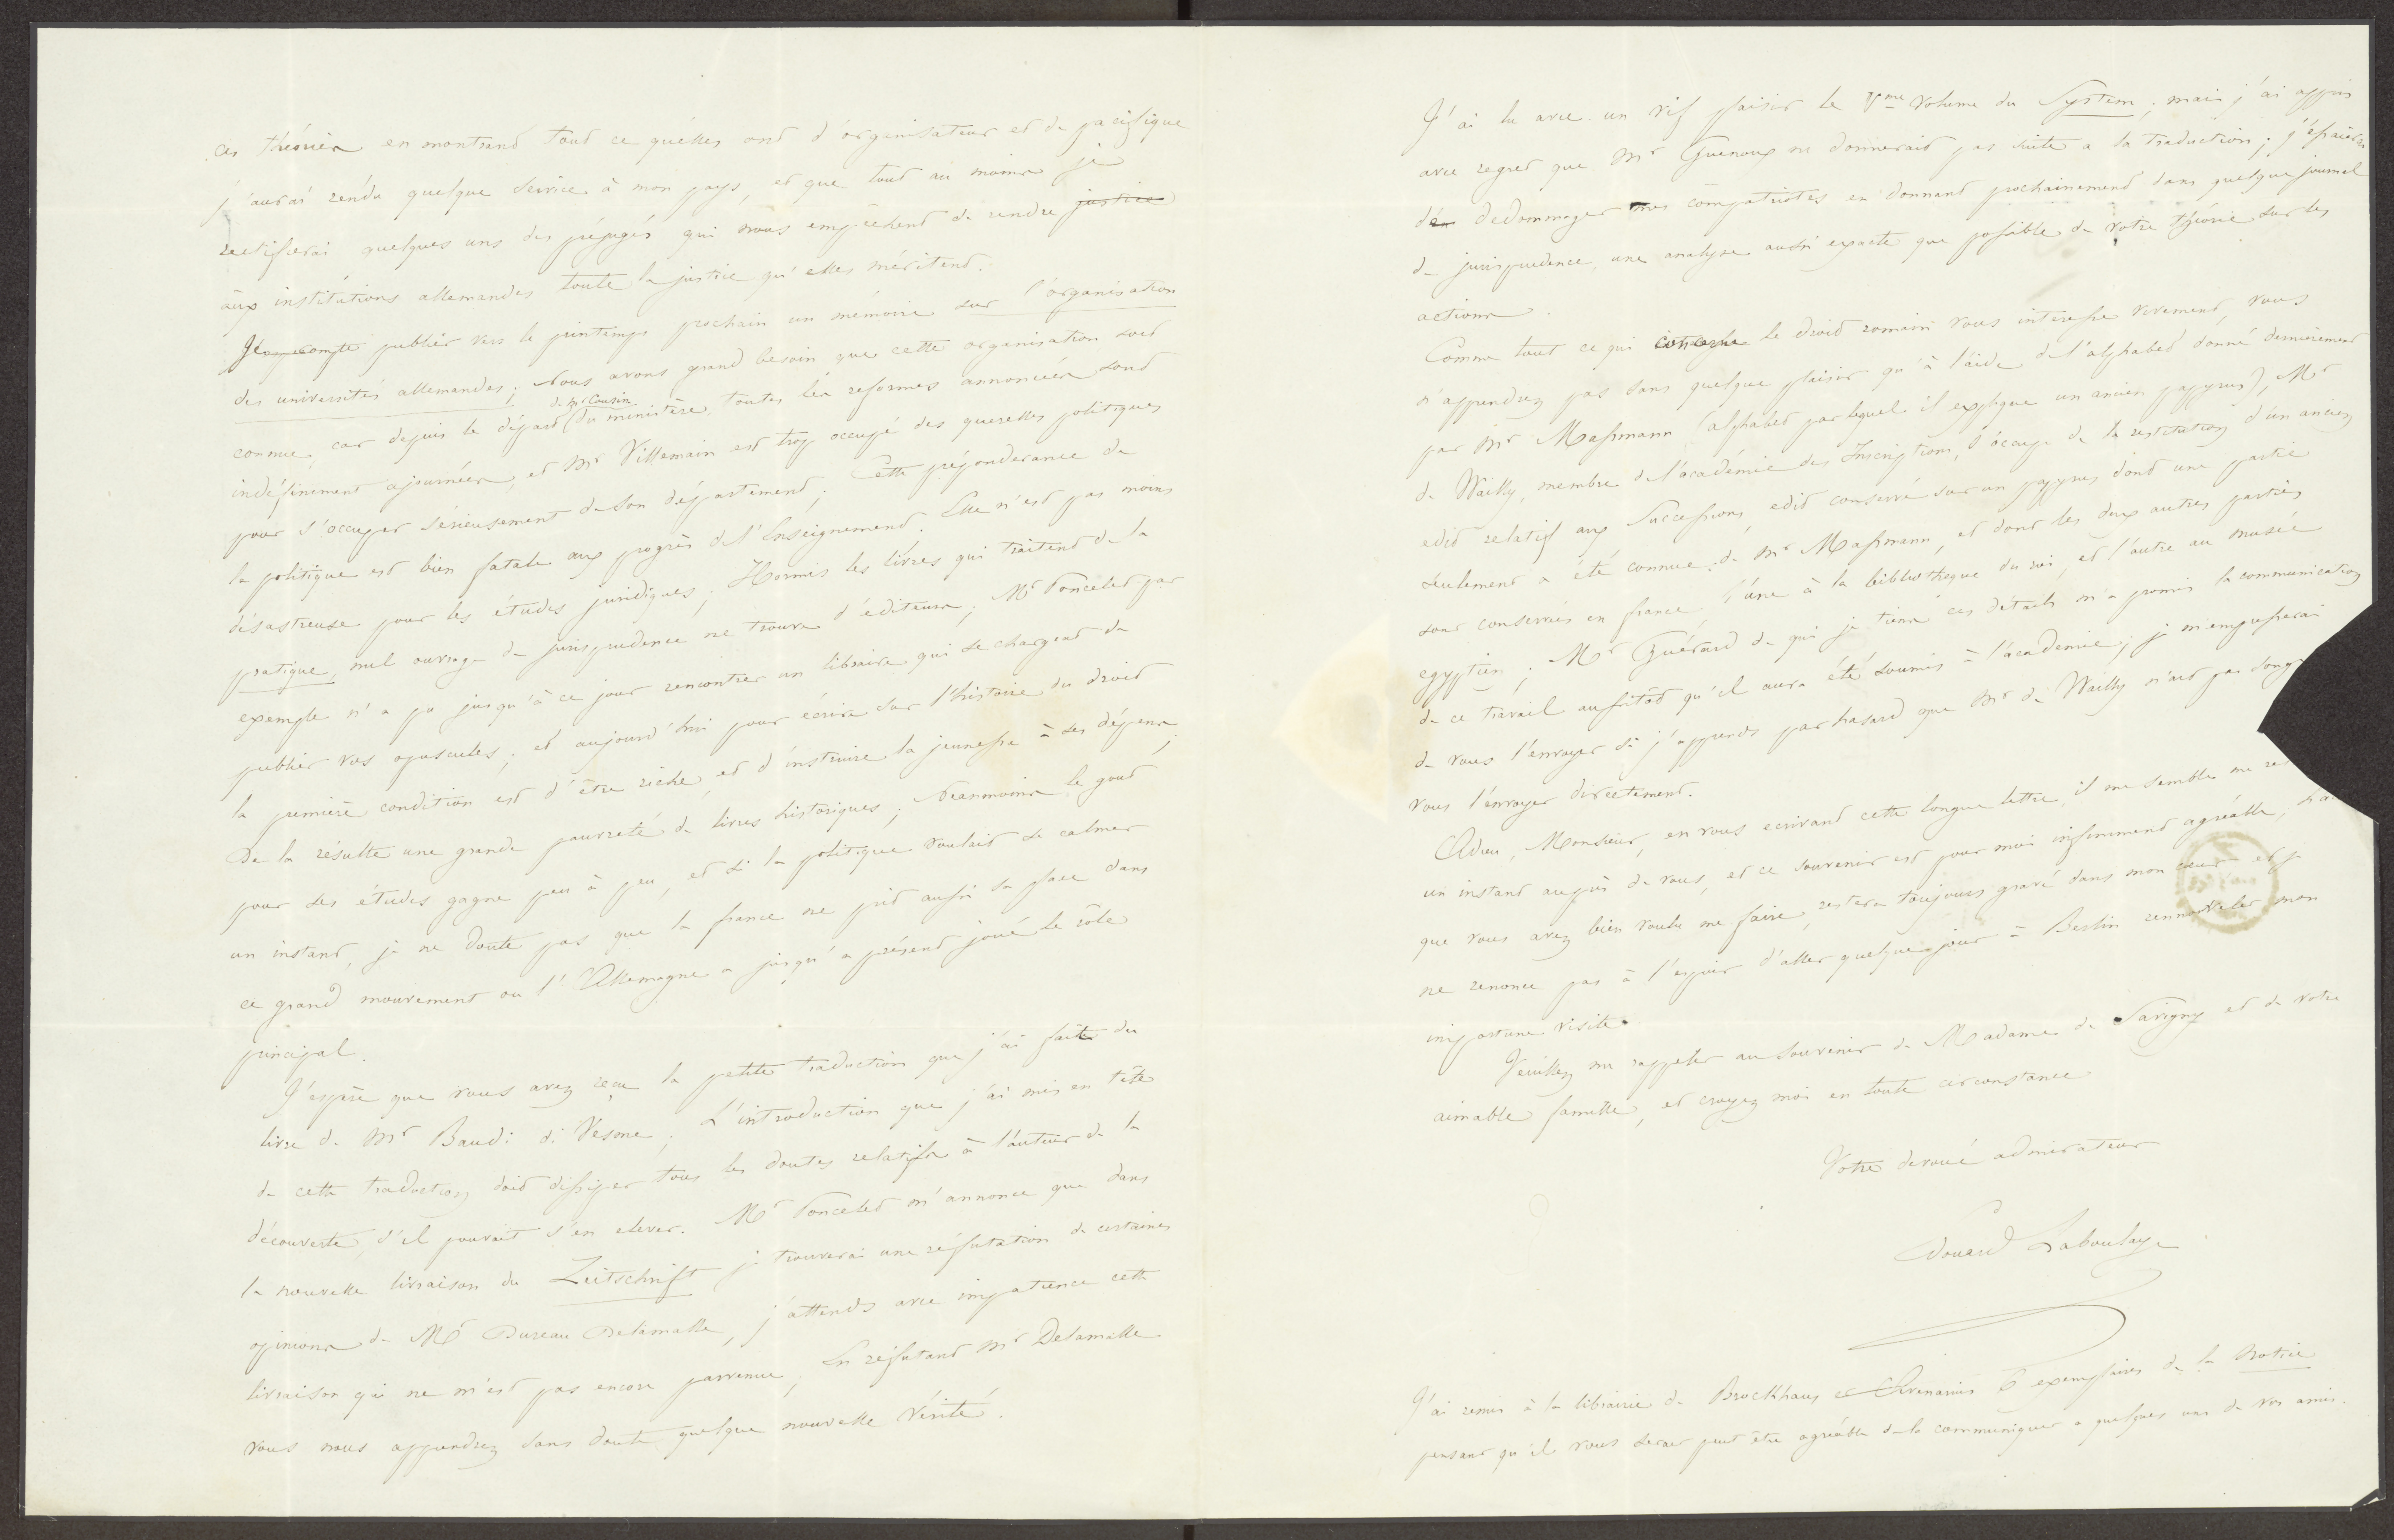 ces théories en montrant tout ce qu'elles ont d'organisateur et de pacifique
j'aurai rendu quelque service à mon pays, et que tout au moins je
rectifierai quelques uns des préjugés qui nous empêchent de rendre justice
aux institutions allemandes toute la justice qu'elles méritent.
Je compte publier vers le printemps prochain un mémoire sur l'organisation
des universités allemandes; Nous avons grand besoin que cette organisation soit
connue, car depuis le départ de Mr Cousin du ministère, toutes les reformes annoncées sont
indéfiniment ajournées, et Mr Villemain est trop occupé des querelles politiques
pour s'occuper sérieusement de son département; Cette préponderance de
la politique est bien fatale aux progrès de l'Enseignement. Elle n'est pas moins
désastreuse pour les études juridiques; Hormis les livres qui traitent de la
pratique, nul ouvrage de jurisprudence ne trouve d'éditeurs; Mr Poncelet par
exemple n'a pu jusqu'à ce jour rencontrer un libraire qui se chargeat de
publier vos opuscules; et aujourd'hui pour écrire sur l'histoire du droit
la première condition est d'être riche, et d'instruire la jeunesse à ses dépens;
De là résulte une grande pauvreté de livres historiques; Neanmoins le gout
pour ces études gagne peu à peu, et si la politique voulait se calmer
un instant, je ne doute pas que la france ne prit aussi sa place dans
ce grand mouvement ou l'Allemagne a jusqu'a présent joué le rôle
principal.
J'espère que vous avez reçu la petite traduction que j'ai faite du
livre de Mr Baudi di Vesme; L'introduction que j'ai mis en tête
de cette traduction doit dissiper tous les doutes relatifs à l'auteur de la
découverte, s'il pouvait s'en elever. Mr Poncelet m'annonce que dans
la nouvelle livraison du Zeitschrift je trouverai une réfutation de certaines
opinions de Mr Dureau Delamalle, j'attends avec impatience cette
livraison qui ne m'est pas encore parvenue; En réfutant Mr Delamalle
vous nous apprendrez sans doute quelque nouvelle vérité.
J'ai lu avec un vif plaisir le Vme volume du System; mais j'ai appris
avec regret que Mr Guenoux ne donnerait pas suite a la traduction; j'essaierai
de dedommager mes compatriotes en donnant prochainement dans quelque journal
de jurisprudence, une analyse aussi exacte que possible de votre théorie sur les
actions.
Comme tout ce qui concerne le droit romain vous interesse vivement, vous
n'apprendrez pas sans quelque plaisir qu'à l'aide de l'alphabet donné dernièrement
par Mr Massmann (alphabet par lequel il explique un ancien papyrus), Mr
de Wailly, membre de l'académie des Inscriptions, s'occupe de la restitution d'un ancien
edit relatif aux Successions, edit conservé sur un papyrus dont une partie
seulement a été connue de Mr Massmann, et dont les deux autres parties
sont conservées en france, l'une à la bibliotheque du roi, et l'autre au musée
egyptien; Mr Guérard de qui je tiens ces détails m'a promis la communication
de ce travail aussitôt qu'il aura été soumis à l'academie; je m'empresserai
de vous l'envoyer si j'apprends par hasard que Mr de Wailly n'ait pas songé
vous l'envoyer directement.
Adieu, Monsieur, en vous ecrivant cette longue lettre, il me semble me
un instant auprès de vous, et ce souvenir est pour moi infiniment agréable,
que vous avez bien voulu me faire, restera toujours gravé dans mon cœur et je
ne renonce pas à l'espoir d'aller quelque jour à Berlin rennouveler mon
importune visite.
Veuillez me rappeler au souvenir de Madame de Savigny et de votre
aimable famille, et croyez moi en toute circonstance
Votre devoué admirateur
Edouard Laboulaye
J'ai remis à la librairie de Brockhaus et Avenarius 6 exemplaires de la Notice
pensant qu'il vous serait peut être agréable de la communiquer a quelques uns de vos amis.